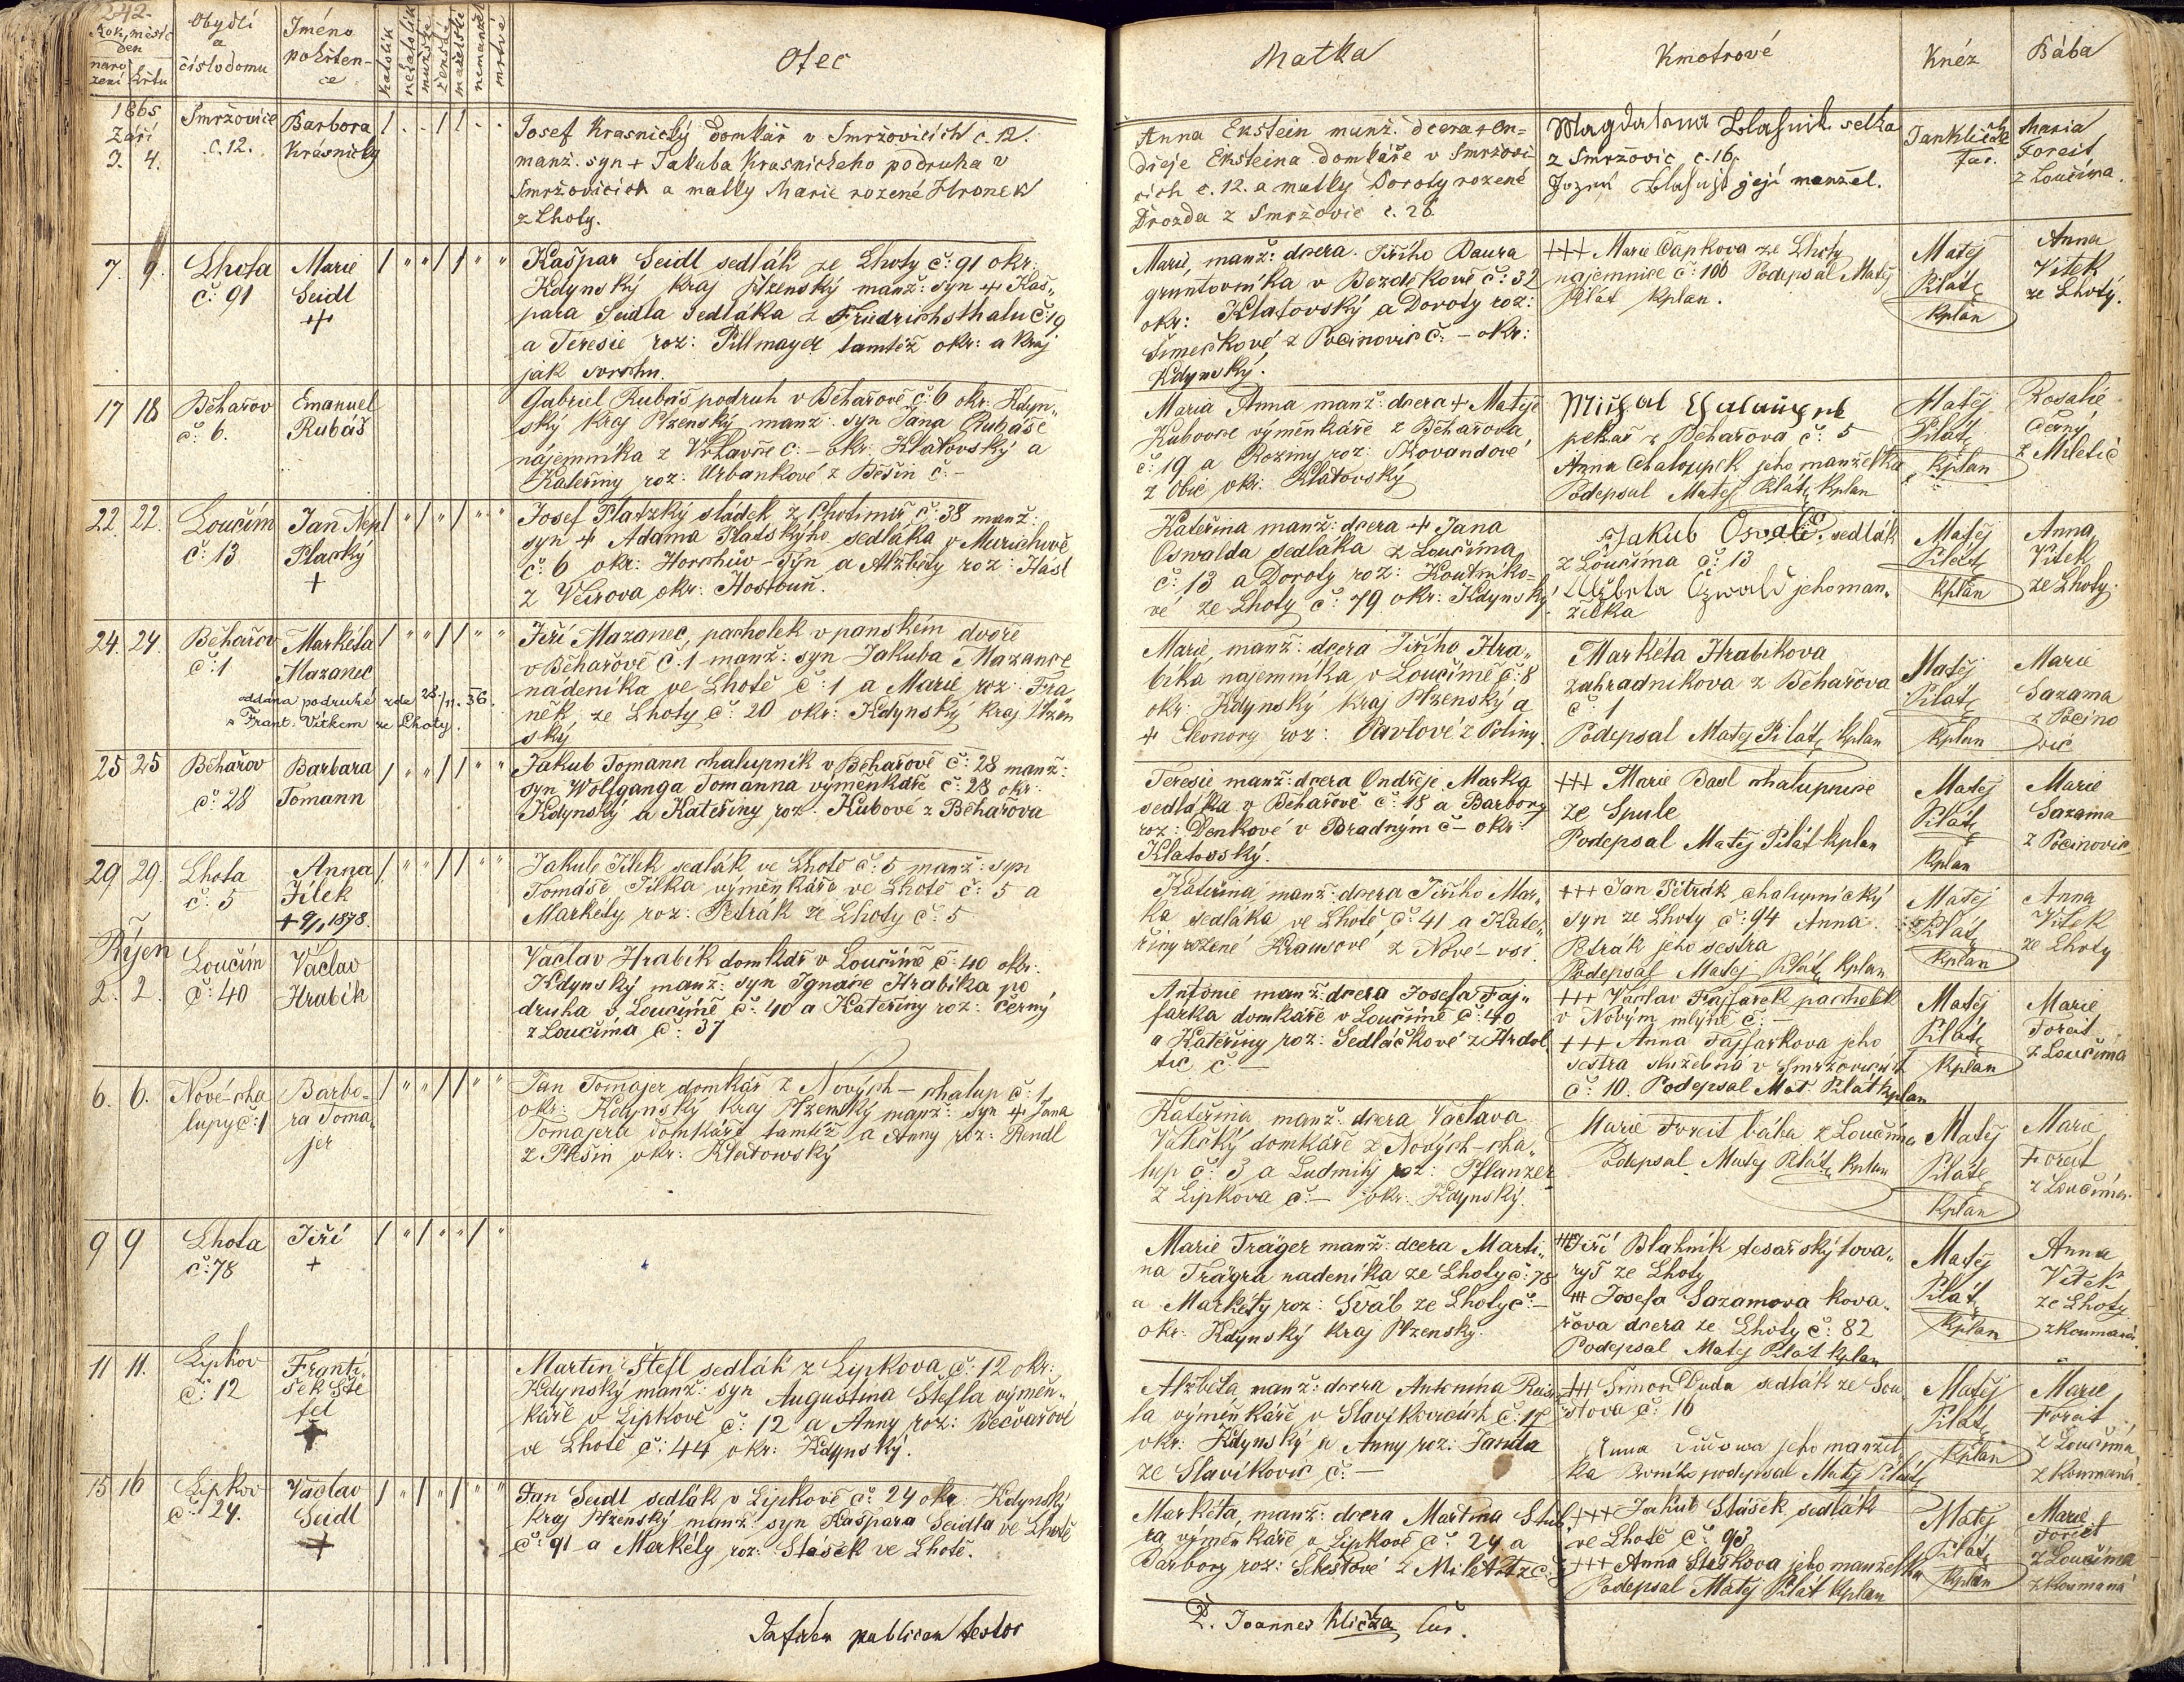 242.
Rok, měsíc
den
naro
zení
křtu
Obydlí
a
číslo domu
Jméno
pokřten-
ce
katolík
nekatolík
mužské
ženské
manželští
nemanžel
mrtvé
Otec
Matka
Kmotrové
Kněz
Bába
1865
Září
3. 4.
Smržovice
č. 12.
Barbora
Krásnický
Josef Krasnický domkář v Smržovicích č. 12.
manž. syn + Jakuba Krasnickeho podruha v
Smržovicích a matky Marie rozené Hronek
z Lhoty.
Anna Ekstein manž. dcera + On-
dřeje Eksteina domkáře v Smržovi-
cích č. 12. a matky Doroty rozené
Drozda z Smržovic č. 26.
Magdalena selka
z Smržovic č. 16,
její manžel.
Jan
Far.
Maria
Foreit
z Loučima.
7. 9.
Lhota
č: 91
Marie
Seidl
+
Kašpar Seidl sedlák ze Lhoty č: 91 okr:
Kdynský kraj Plzenský manž: syn + Kaš„
para Seidla sedláka z Friedrichsthalu č: 19
a Teresie roz: Pillmayer tamtéž okr: a kraj
jak svrchu.
Marie, manž: dcera Jiřího Baura
gruntovníka v Bezděkově č: 32
okr: Klatovský a Doroty roz:
Šimečkové z Pocinovic č: – okr:
Kdynský.
+++ Marie Čapkova ze Lhoty
najemnice č: 100 Podepsal Matěj
Pilát kplan.
Matěj
Pilát
kplan
Anna
Vítek
ze Lhoty.
17 18
Běhařov
č: 6.
Emanuel
Rubáš
Gabriel Rubáš podruh v Běhařově č: 6 okr: Kdyn„
ský kraj Plzenský manž: syn Jana Rubáše
nájemníka z Vrhavče č: – okr: Klatovský a
Kateřiny roz: Urbankové z Běšin č: –
Maria Anna manž: dcera + Matěje
Kubovce výměnkáře z Běhařova
č: 19 a Roziny roz: Kovandové
z Obic okr: Klatovský
Michal
pekař z Běhařova č: 5
Anna Chalupek jeho manželka
Podepsal Matěj Pilát kplan
Matěj
Pilát
kplan
Rosalie
Černý
z Miletic
22. 22.
Loučim
č: 13
Jan Nep
Placký
+
Josef Platzký sládek z Chotiměř č: 38 manž:
syn + Adama Platskýho sedláka v Murichově
č: 6 okr: Horchův–Týn a Alžběty roz: Hasl
z Věvrova okr: Hostouň.
Kateřina manž: dcera + Jana
Oswalda sedláka z Loučima
č: 13 a Doroty roz: Koutníko-
vé ze Lhoty č: 79 okr: Kdynský.
Jakub Osvald, sedlák
z Loučima č: 13
Alžběta Oswald jeho man„
želka
Matěj
Pilát
kplan
Anna
Vítek
ze Lhoty.
24. 24.
Běhařov
č: 1
Markéta
Mazanec
oddána podruhé zde 28./11. 36.
s Frant. Vítkem ze Lhoty.
Jiří Mazanec, pacholek v panském dvoře
v Běhařově č: 1 manž: syn Jakuba Mazance
nádeníka ve Lhotě č: 1 a Marie roz: Fra
něk ze Lhoty č: 20 okr: Kdynský kraj Plzen
ský
Marie manž: dcera Jiřího Hra„
bíka najemníka v Loučimě č: 8
okr: Kdynský kraj Plzenský a
+ Eleonory roz: Pavlové z Poliny.
Markéta Hrabíkova
zahradníkova z Běhařova
č: 1
Podepsal Matěj Pilát kplan
Matěj
Pilát
kplan
Marie
Sazama
z Pocino
vic
25 25
Běhařov
č: 28
Barbara
Tomann
Jakub Tomann chalupník v Běhařově č: 28 manž:
syn Wolfganga Tomanna výměnkáře č: 28 okr:
Kdynský a Kateřiny roz: Kubové z Běhařova
Teresie manž: dcera Ondřeje Marka
sedláka v Běhařově č: 18 a Barbory
roz: Denkové v Bradným č – okr:
Klatovský.
+++ Marie Basl chalupnice
ze Spule
Podepsal Matěj Pilát kplan
Matěj
Pilát
kplan
Marie
Sazama
z Pocinovic
29 29.
Lhota
č: 5
Anna
Jílek
+ 9/1 1878.
Jakub Jílek sedlák ve Lhotě č: 5 manž: syn
Tomáše Jílka výměnkáře ve Lhotě č: 5 a
Markéty roz: Petrák ze Lhoty č: 5
Kateřina, manž: dcera Jiřího Mar„
ka sedláka ve Lhotě č: 41 a Kate„
řiny rozené Krausové z Nové–vsi.
+++ Jan Petrák chalupnický
syn ze Lhoty č: 94 Anna
Petrák jeho sestra
Podepsal Matěj Pilát kplan
Matěj
Pilát
kplan
Anna
Vítek
ze Lhoty
Říjen
2. 2.
Loučim
č: 40
Václav
Hrabík
Vaclav Hrabík domkář v Loučimě č: 40 okr:
Kdynský manž: syn Ignáce Hrabíka po
druha v Loučimě č: 40 a Kateřiny roz: Černý
z Loučima č: 37
Antonie manž: dcera Josefa Faj„
farka domkáře v Loučimě č: 40
a Kateřiny roz: Sedláčkové z Hrdol
tic č: –
+++ Václav Fajfarek pacholek
v Novým mlýně č: –
+++ Anna Fajfarkova jeho
sestra služebná v Smržovicích
č: 10. Podepsal Mat. Pilát kplan
Matěj
Pilát
kplan
Marie
Foreit
z Loučima
6. 6.
Nové-cha
lupy č: 1
Barbo-
ra Toma
jer
Jan Tomajer domkář z Nových–chalup č: 1
okr: Kdynský kraj Plzenský manž: syn + Jana
Tomajera domkáře tamtéž a Anny roz: Rendl
z Plešin okr: Klatowský
Kateřina manž: dcera Václava
domkáře z Nových–cha„
lup č: 3 a Ludmily roz: Pflanzer
z Lipkova č: – okr: Kdynský.
Marie Foreit bába z Loučima
Podepsal Matěj Pilát kplan
Matěj
Pilát
kplan
Marie
Foreit
z Loučima.
9 9
Lhota
č: 78
Jiří
+
Marie Träger manž: dcera Marti„
na Trägra nadeníka ze Lhoty č: 78
a Markéty roz: Šváb ze Lhoty č: –
okr: Kdynský kraj Plzenský.
+++ Jiří Blahník tesařský tova„
ryš ze Lhoty
+++ Josefa Sazamova kova„
řova dcera ze Lhoty č: 82
Podepsal Matěj Pilát kplan
Matěj
Pilát
kplan
Anna
Vítek
ze Lhoty
zkoumaná.
11 11.
Lipkov
č: 12
Franti„
šek Ště
fel
+
Martin Štefl sedlák z Lipkova č: 12 okr:
Kdynský manž: syn Augustina Štefla výměn„
káře v Lipkově č: 12 a Anny roz: Bečvařové
ve Lhotě č: 44 okr: Kdynský.
Alžběta manž: dcera Antonína
la výměnkáře v Slavíkovicích č: 17
okr: Kdynský a Anny roz: Janda
ze Slavíkovic č: –
+++ Šimon Duda sedlák ze Sou
stova č: 16
Anna jeho manžel
ka podepsal Matěj Pilát
Matěj
Pilát
kplan
Marie
Foreit
z Loučima
zkoumaná
15 16
Lipkov
č: 24.
Vaclav
Seidl
+
Jan Seidl sedlák v Lipkově č: 24 okr: Kdynský
kraj Plzenský manž: syn Kašpara Seidla ve Lhotě
č: 91 a Markéty roz: Stašek ve Lhotě.
Markéta, manž: dcera Martina Stub
ra výměnkáře v Lipkově č: 24 a
Barbory roz: Šlestové z Miletitz č:
+++ Jakub Stašek sedlák
ve Lhotě č: 93
+++ Anna Staškova jeho manželka
Podepsal Matěj Pilát kplan
Matěj
Pilát
kplan
Marie
Foreit
z Loučima
zkoumaná
In fidem publicam testor
P. Joannes Klička Cur.